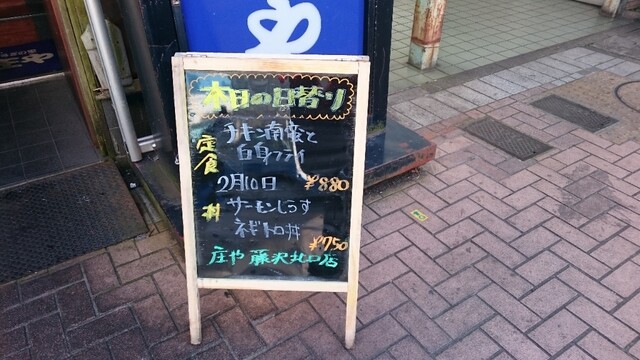 本日の日替り
定食
チキン南蛮と
白身フライ
2月10日 ¥880
丼
サーモンしらす
ネギトロ丼
¥750
庄や 藤沢北口店